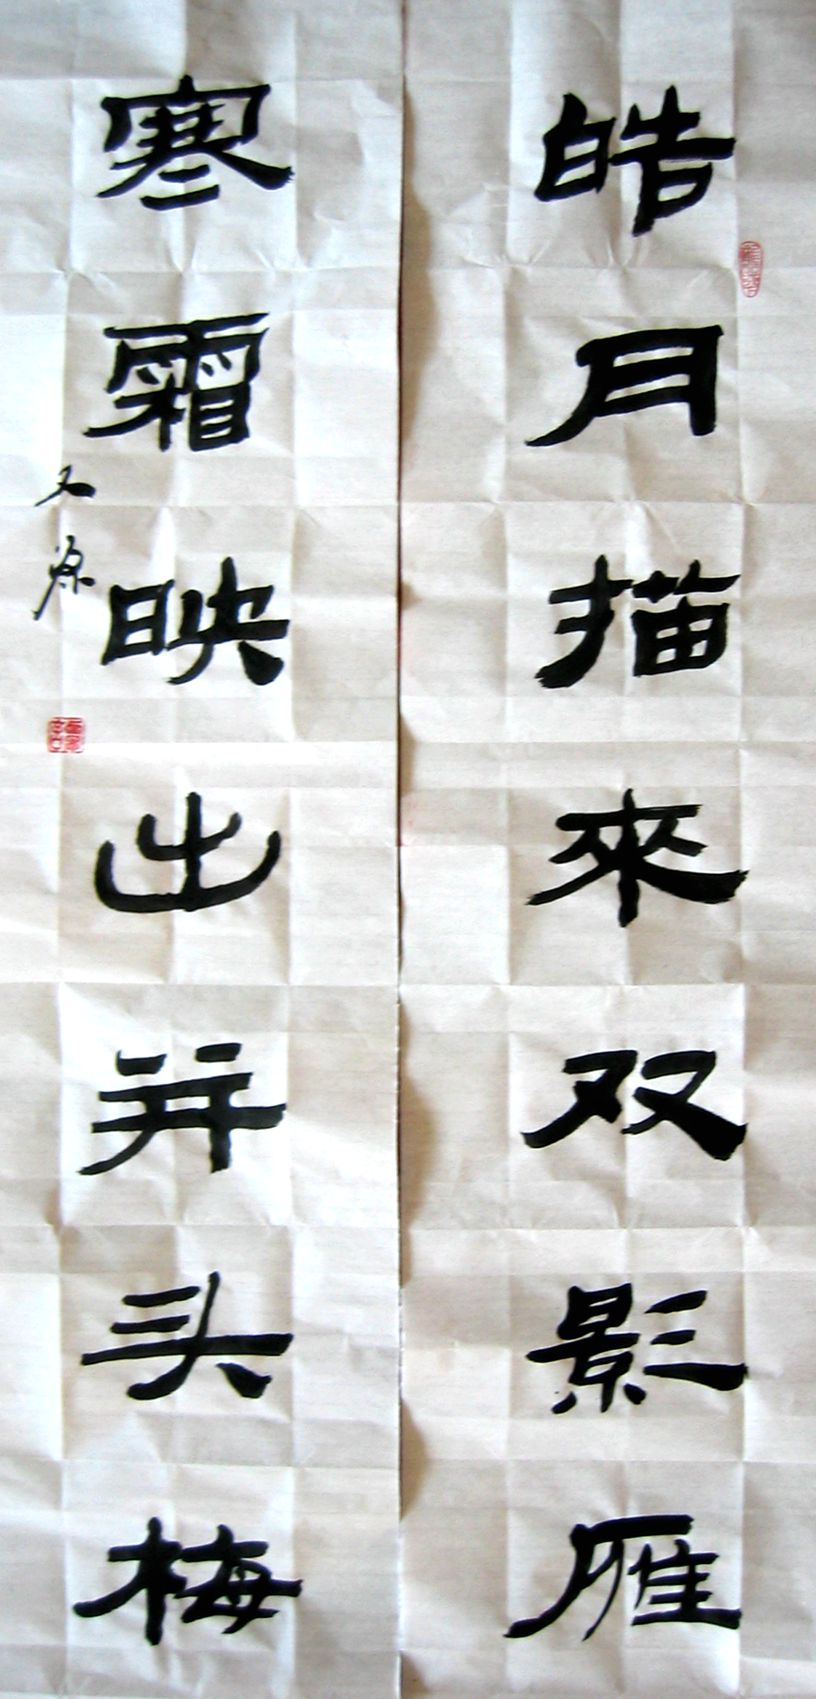 皓月描來双影雁
寒霜映出并头梅
文源